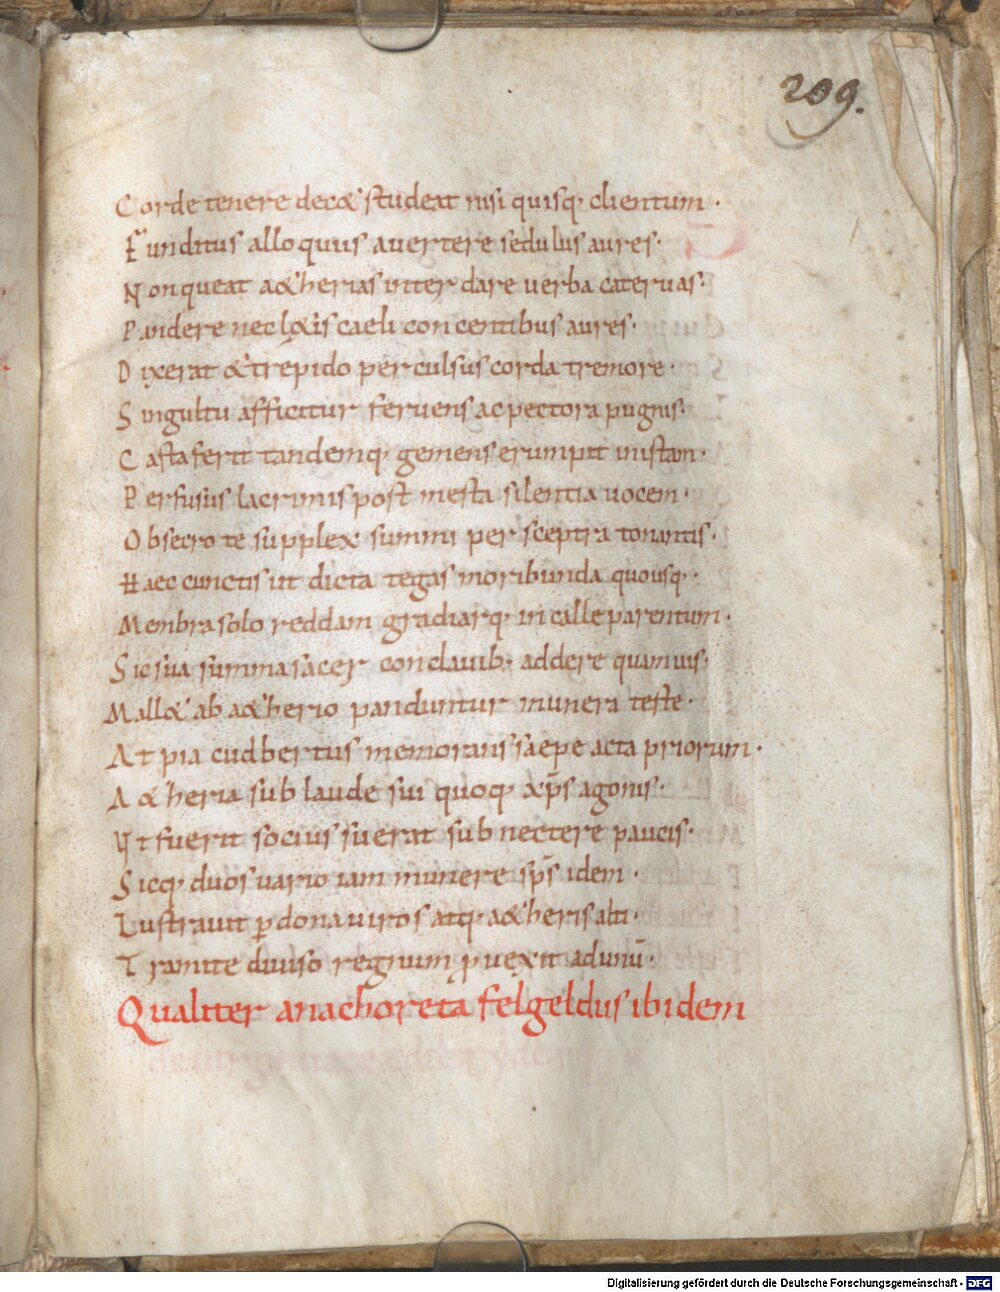 209.
Corde tenere dec& studeat nisi quisq; clientum ·
Funditus alloquiis auertere sedulus aures·
Non queat a&herias inter dare uerba cateruas·
Pandere nec l&is caeli concentibus aures·
Dixerat & trepido perculsus corda tremore ·
Singultu afficitur feruens ac pectora pugnis·
Casta ferit tandemq; gemens erumpit in istam·
Perfusus lacrimis post mesta silentia uocem ·
Obsecro te supplex summi per sceptra tonantis·
Haec cunctis ut dicta tegas moribunda quousq; ·
Membra solo reddam gradiarq; in calle parentum·
Sic sua summa sacer conclauib; addere quamuis·
Mall& ab a&herio panduntur munera teste ·
At pia cudbertus memorans saepe acta priorum·
A&heria sub laude sui quoq; xp̅s agonis·
Ut fuerit socius suerat subnectere paucis·
Sicq; duos uario iam munere sp̅s idem ·
Lustrauit ꝑ dona uiros atq; a&heris alti ·
Tramite diuiso regnum ꝓuexit ad unū·
Qualiter anachoreta felgeldus ibidem
Digitalisierung gefördert durch die Deutsche Forschungsgemeinschaft · DFG